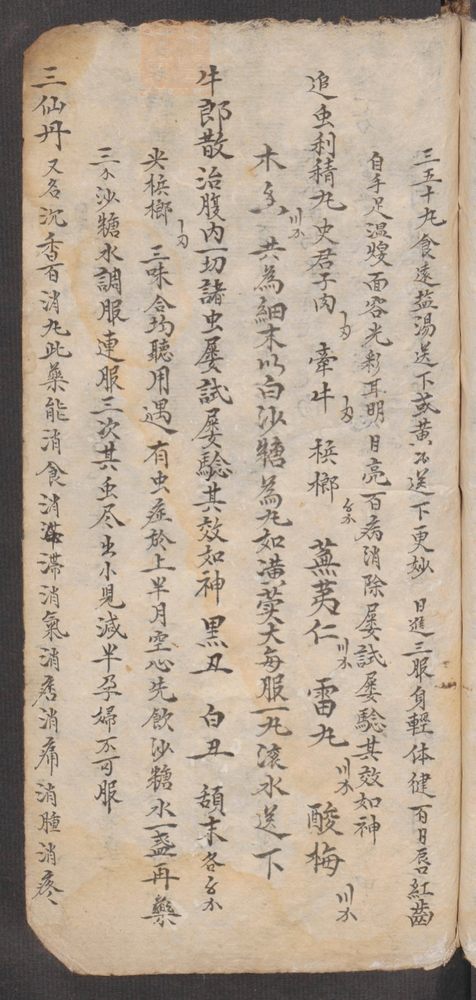 三五十丸食遠盐湯送下或黄酒送下更妙 日進三服身輕体健百日唇紅齒
白手足溫煖面容光彩耳明目亮百病消除屡試屡驗其效如神
追虫利積丸 史君子肉 牽牛 梹榔 蕪荑仁 雷丸 酸梅
木香 共為細末以白沙糖為丸如大每服一丸滚水送下
牛郎散 治腹内一切諸虫屡試屡驗其效如神 黑丑 白丑 頡末各
尖梹榔 三味合均聽用遇有虫症於上半月空心先飲沙糖水一盏再藥
三沙糖水調服連服三次其虫尽出小児減半孕婦不可服
三仙丹 又名沉香百消丸此藥能消食消滯消氣消痞消痛消腫消疼